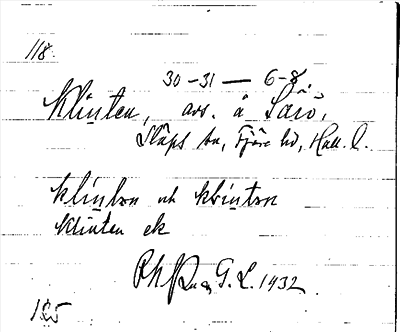 118.
30-31 — 6-8.
Klinten, avs. å Särö,
Släps sn, Fjäre hd, Hall. l.
klintən och klintən
Klinten ek
G. L. 1932.